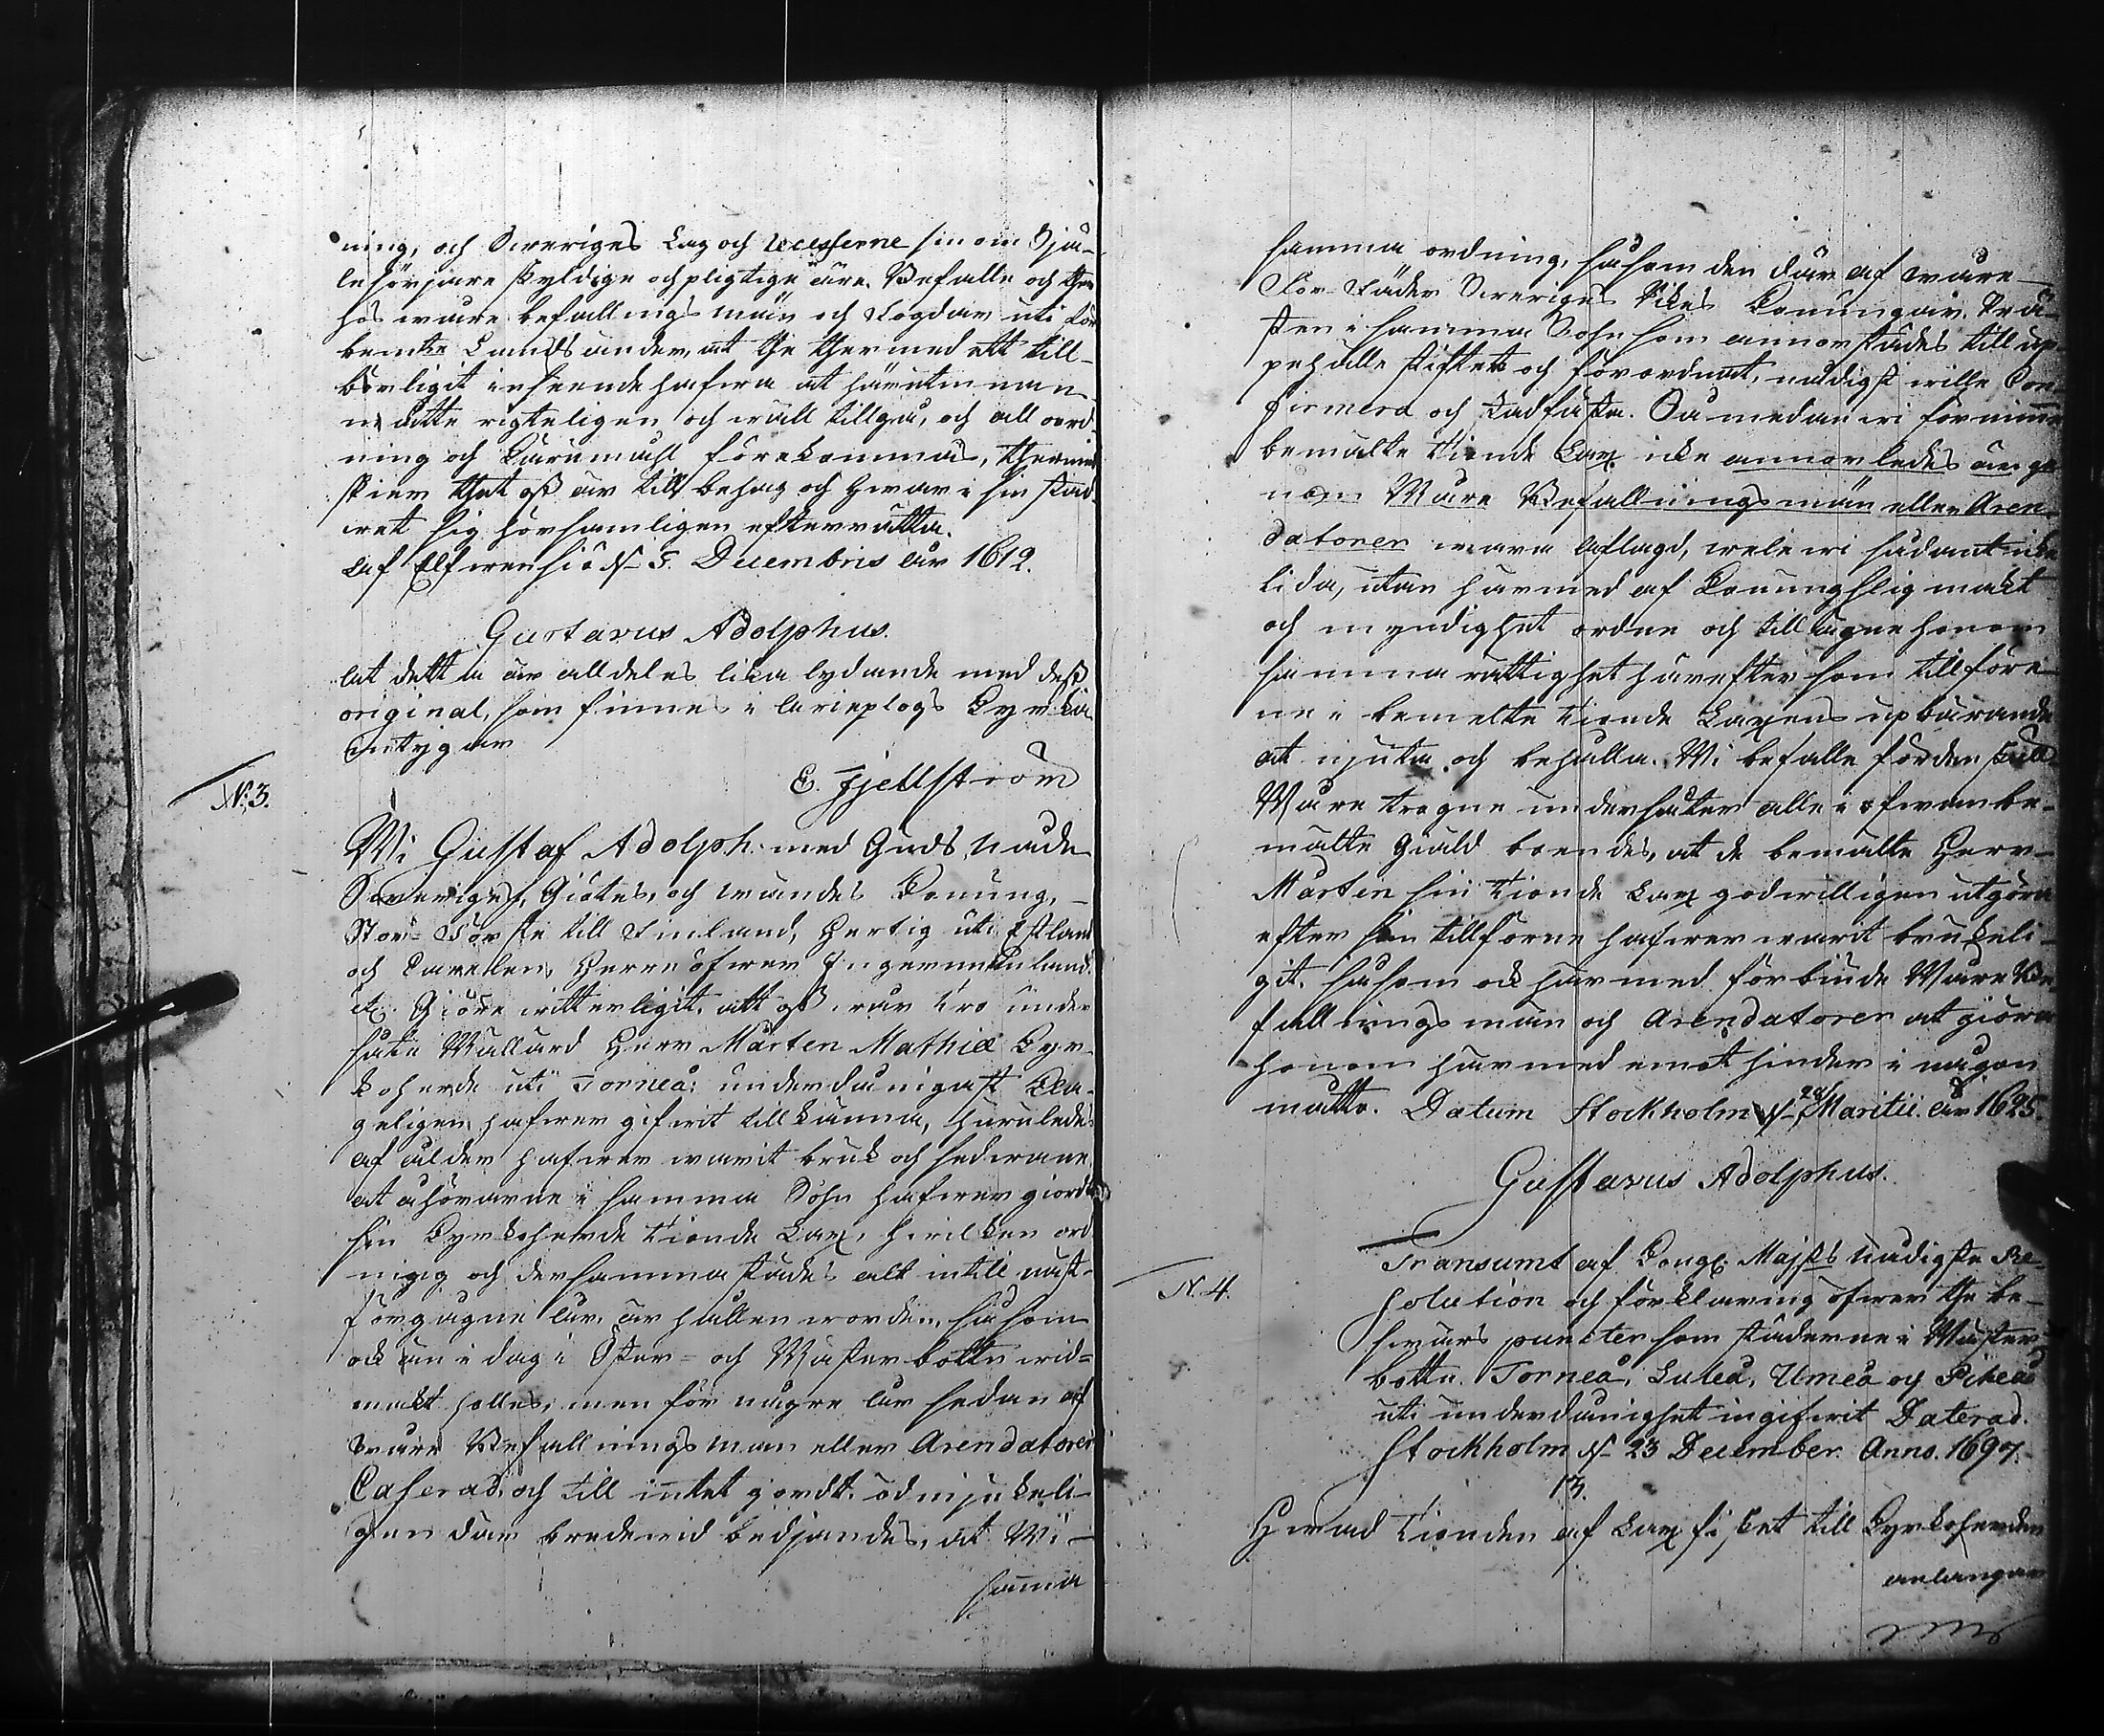 ning, och Sweriges Lag och recesserne sin om Sjä-
lesörjare skyldige och pligtige äre. Befalle och ther
hos wåre befallings män och Fogdar uti för
bemte Landsändar, at the ther med ett till-
börligit inseende hafwa at härutinnan
må dette rigteligen och wäll tillgå, och all oord-
ning och Larmmahl förekommas, thermed
skier thet oss är till behag och hwar i sin stad
wet sig hörsamligen efterrätta.
af Elfwensiö d. 5. Decembris åhr 1619.
Gustavus Adolphus.
at detta är alldeles lika lydande med dess
original, som finnes i Arieplogs Kyrcka
intygar
E. Fjellström
N:3.
Wi Gustaf Adolph med Guds nåde
Sweriges, Giötes, och Wändes Konung,
Stor-Förste till Finland, Hertig uti Estland
och Carelen, Herre öfwer Ingermanland
etc. Giöre witterligit, att oss wår tro under
såte Wällärd Herr Mårten Mathiæ Kyr-
koherde uti Torneå: underdånigast kla-
geligen hafwer gifwit tillkänna, huruledes
af ålder hafwer warit bruk och sedwane,
at åhörarne i samma Sohn hafwer giordt
sin Kyrkoherde tionde Lax, hwilken ord
ning och der sammastädes alt intill näst-
förgågne åhr, är hållen worden, såsom
ock än i dag i Öster- och Wästerbottn wid-
mackt holles, men för någre åhr sedan af
wåre Befallningsmän eller Arendatorer
Casserad, och till intet giordt, ödmjukeli-
gen der brede wid bedjandes, at Wi
samma
samma ordning, såsom den där af wåre
För-Fäder Sweriges Rikes Konungar, Prä-
sten i samma Sohn som annorstädes till up-
pehälle stiftet och förordnat, nådigst wille Con-
firmera och stadfästa. Så medan wi förnimme
bemälte tionde Lax icke annorledes än ge
nom Wåre Befallningsmän eller Aren-
datorer wara aflagd, wele wi sådant icke
lida, utan härmed af Konungslig makt
och myndighet ordne och tilläigne honom
samma rättighet härefter som tillföre-
ne i bemelte tionde Laxens upbärande
at niuta och behålla. Wi befalle fördenskull
Wåre trogne undersåter alle i ofwanbe-
mälte Giäld boendes, at de bemälte Herr
Mårten sin tionde Lax godwilligen utgöra
efter som tillforne hafwer warit brukeli-
git, såsom ock härmed förbiude Wåre Be-
fallningsmän och Arendatorer at giöra
honom härmed emot hinder i någon
måtto. Datum Stockholm d. 28 Martii åhr 1625.
Gustavus Adolphus.
N. 4.
Transumt af Kongl. Majsts nådigste Re-
solution och förklaring öfwer the be-
swärs puncter som städerne i Wäster-
bottn. Torneå, Luleå, Umeå och Piteå
uti underdånighet ingifwit Daterad.
Stockholm d. 23 December. Anno. 1697.
13.
Hwad tionden af Lax fisket till Kyrkoherden
anlangar